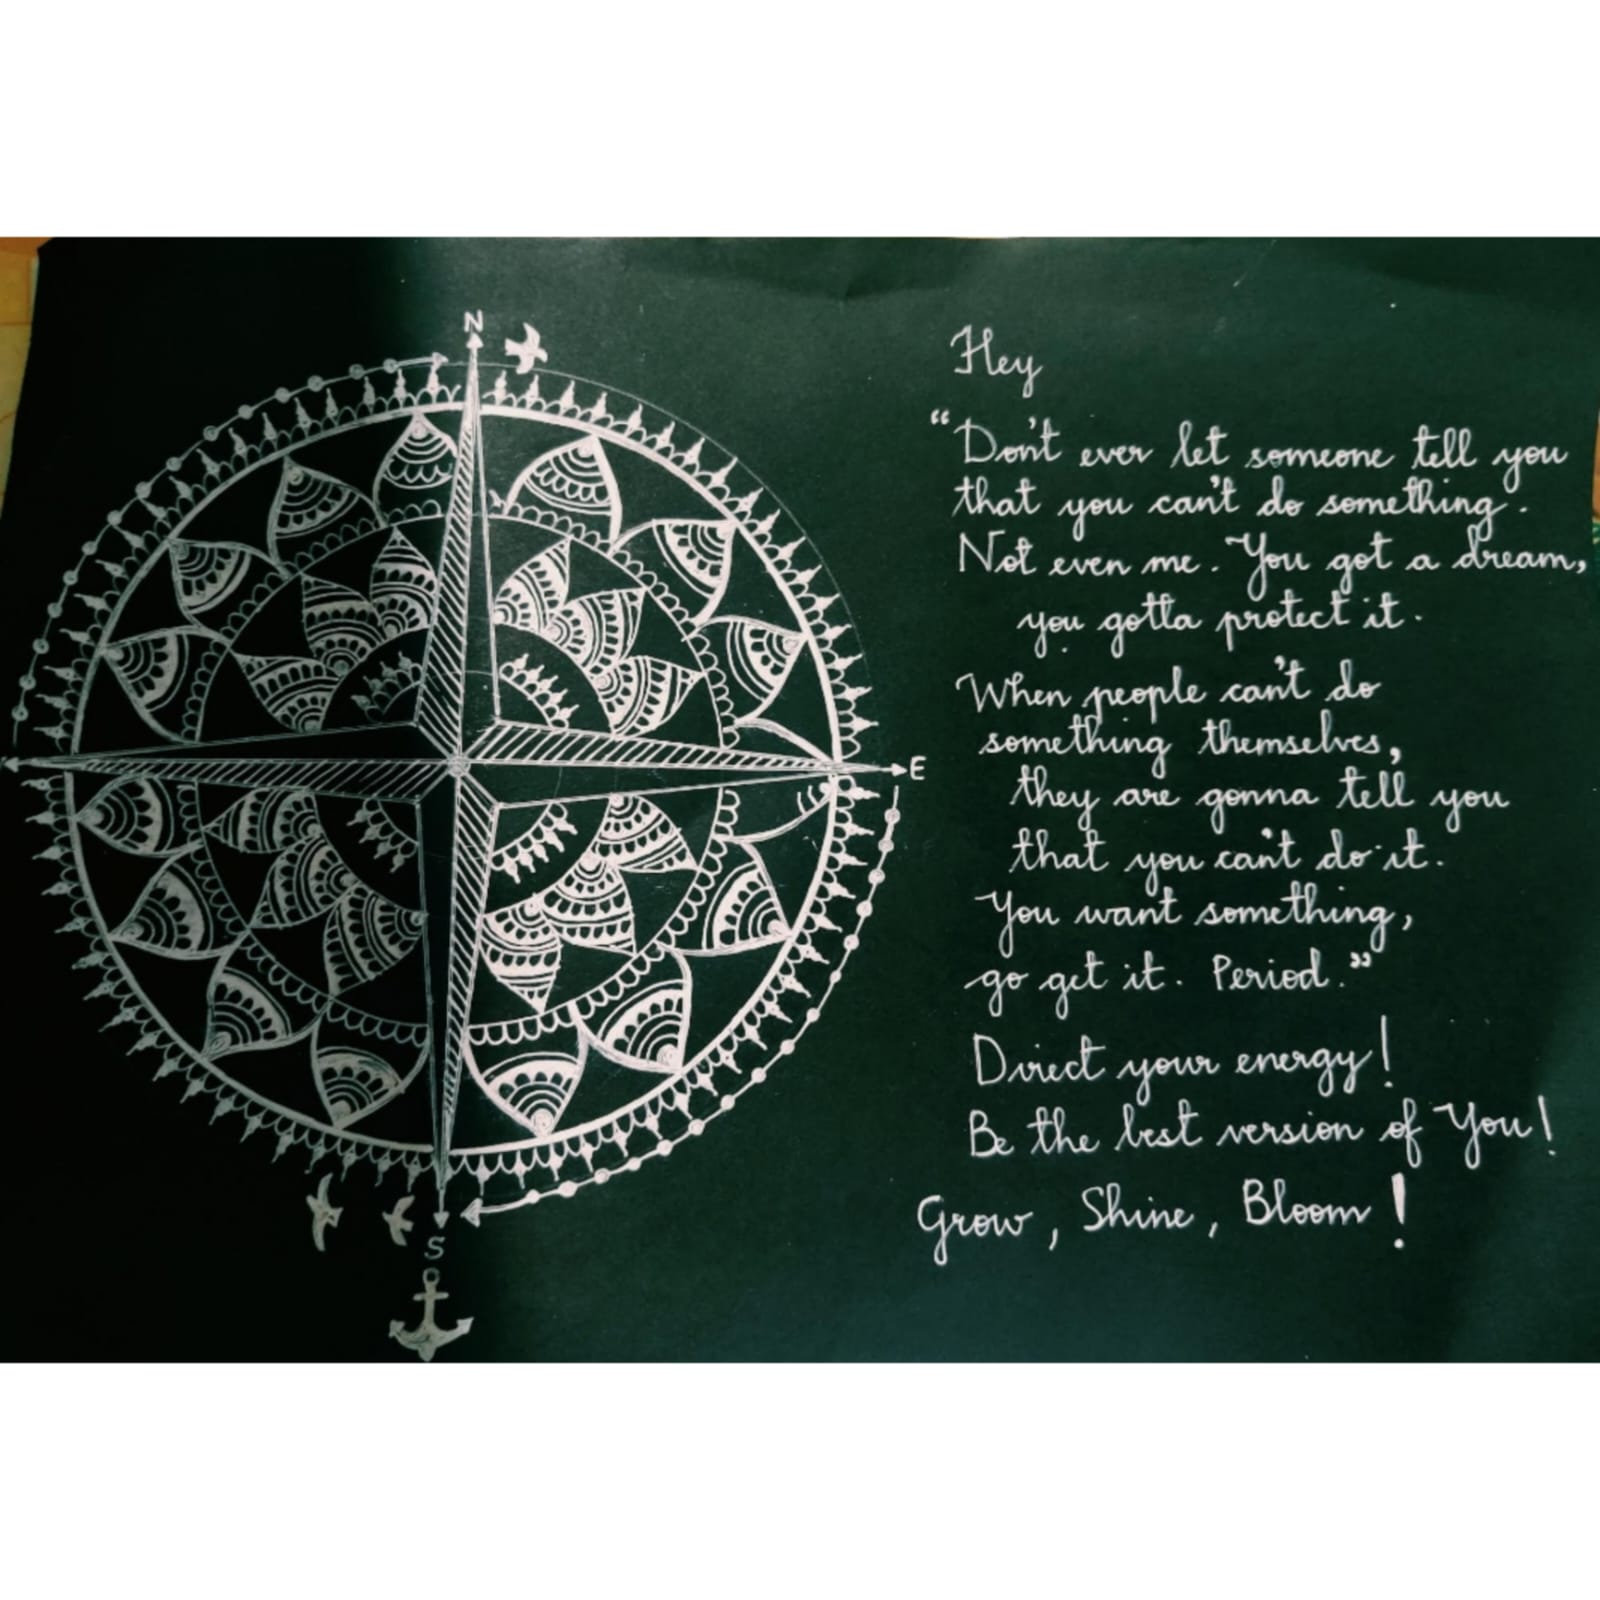 N
E
S
Hey
“Don't ever let someone tell you
that you can't do something.
Not even me. You got a dream,
you gotta protect it.
When people can't do
something themselves,
they are gonna tell you
that you can't do it.
You want something,
go get it. Period.”
Direct your energy!
Be the best version of You!
Grow, Shine, Bloom!